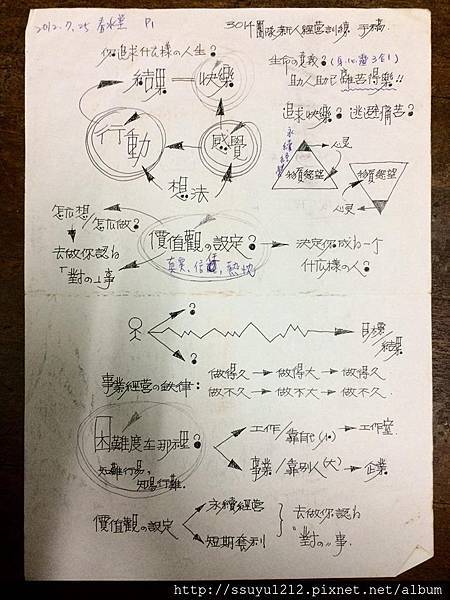 2012.7.25 春水堂 P1
3014團隊新人經營訓練 手稿.
你追求什么樣の人生?
生命の意義? (身心靈3合1)
助人助己離苦得樂!!
結果 快樂
行動 感覺
想法
追求快樂? 逃避痛苦?
永續經營
心灵
物質慾望
物質慾望
心灵
怎么想/怎么做?
去做你認为
「對の」事
價值觀の設定?
真實、信任、熱忱
決定你成为一个
什么樣の人?
?
目標/結果
?
事業經營の鉄律:
做得久 做得大 做得久
做不久 做不大 做不久.
困難度在那裡?
知難行易,
知易行難.
工作/靠自己(小) 工作室.
事業/靠別人(大) 企業
價值觀の設定
永續經營
短期套利
去做你認为
"對の"事.
http://ssuyu1212.pixnet.net/album